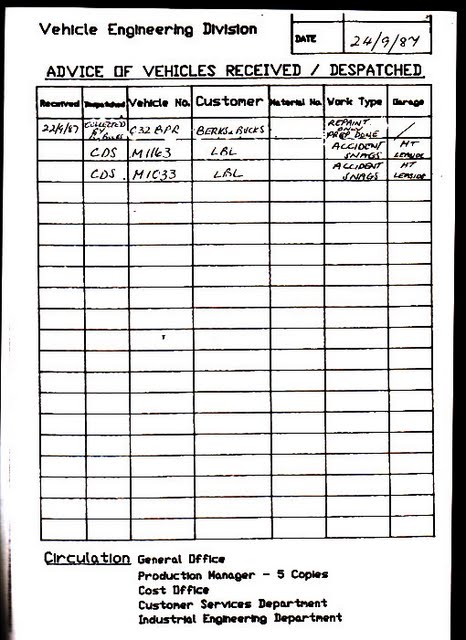 Vehicle Engineering Division
DATE 24/9/87
ADVICE OF VEHICLES RECEIVED / DESPATCHED
Received Despatched Vehicle No. Customer Material No. Work Type Garage
22/9/87 COLLECTED BY C32 BPR BERKS & BUCKS REPAINT ONLY PREP DONE /
CDS M1163 LBL ACCIDENT SNAGS HT LEASIDE
CDS. M1033 LBL ACCIDENT SNAGS HT LEASIDE
Circulation General Office
Production Manager - 5 Copies
Cost Office
Customer Services Department
Industrial Engineering Department